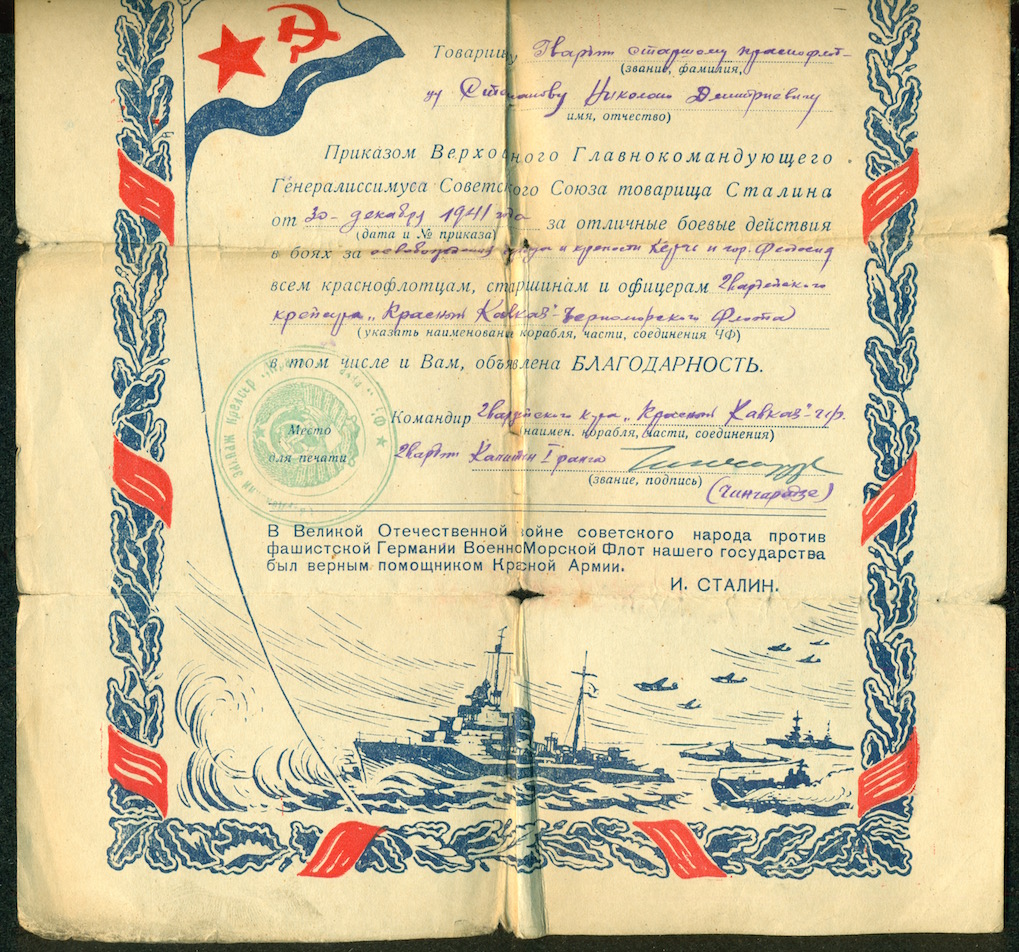 Товарищу Гвардт старшему краснофлот-
(звание, фамилия,
цу Николаю Дмитриевичу
имя, отчество)
Приказом Верховного Главнокомандующего
Генералиссимуса Советского Союза товарища Сталина
от 30 – декабря 1941 года за отличные боевые действия
(дата и № приказа)
в боях за освобождение города и крепости Керчь и гор. Феодосия
всем краснофлотцам, старшинам и офицерам Гвардейского
крейсера „Красный Кавказ" Черноморского Флота
(указать наименование корабля, части, соединения ЧФ)
в том числе и Вам, объявлена БЛАГОДАРНОСТЬ.
Командир Гвардейского кр-ра „Красный Кавказ"-ЧФ.
(наимен. корабля, части, соединения)
Место
для печати
Гвардт Капитан I ранга
(звание, подпись)
(Чинчарадзе)
В Великой Отечественной войне советского народа против
фашистской Германии Военно-Морской Флот нашего государства
был верным помощником Красной Армии.
И. СТАЛИН.